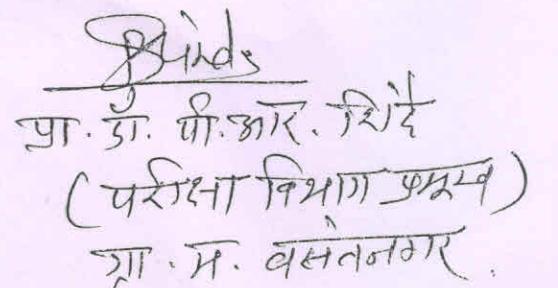 प्रा. डॉ. पी. आर. शिंदे
(परीक्षा विभाग प्रमुख)
ग्रा. म. वसंतनगर.